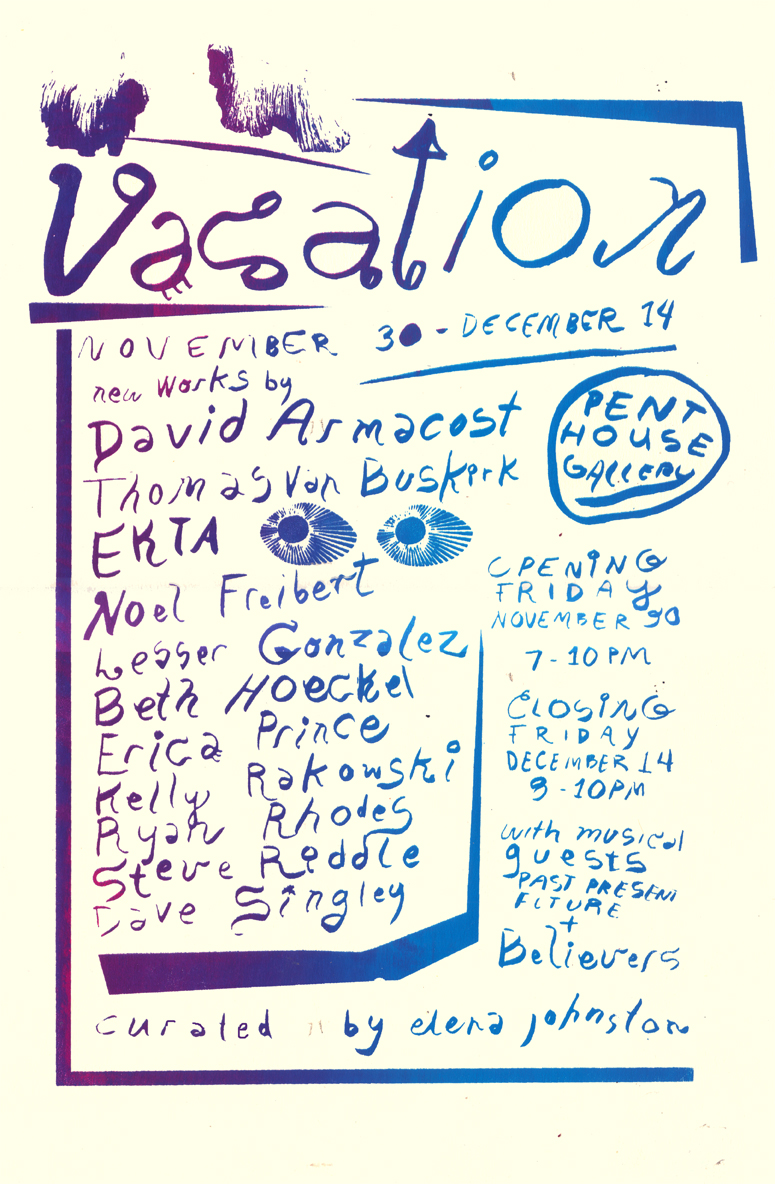 Vacation
NOVEMBER 30 - DECEMBER 14
new works by
David Armacost
Thomas Van Buskirk
EKTA
Noel Freibert
Lesser Gonzalez
Beth Hoeckel
Erica Prince
Kelly Rakowski
Ryan Rhodes
Steve Riddle
Dave Singley
PENT
HOUSE
GALLERY
OPENING
FRIDAY
NOVEMBER 30
7-10 PM
CLOSING
FRIDAY
DECEMBER 14
8-10PM
with musical
guests
PAST PRESENT
FUTURE
+
Believers
curated by elena johnston